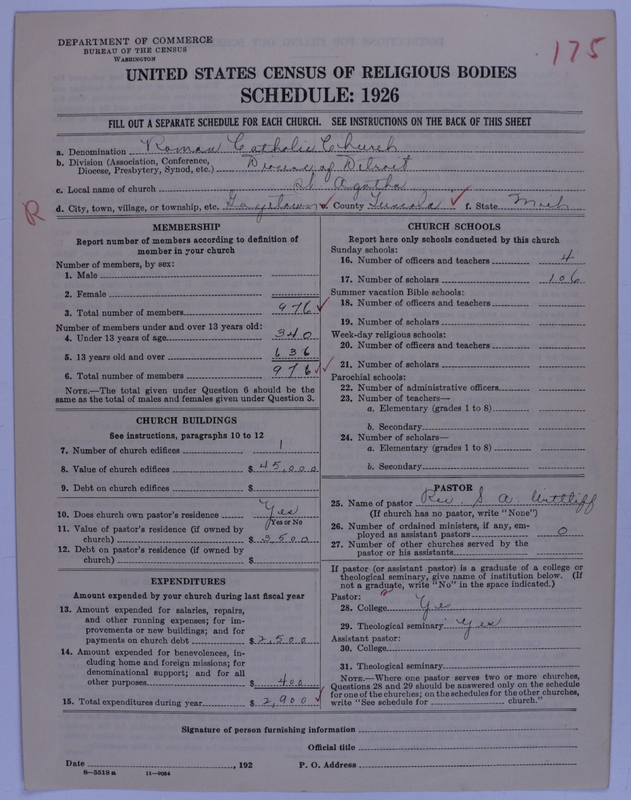 DEPARTMENT OF COMMERCE
BUREAU OF THE CENSUS
WASHINGTON
175
UNITED STATES CENSUS OF RELIGIOUS BODIES
SCHEDULE: 1926
FILL OUT A SEPARATE SCHEDULE FOR EACH CHURCH. SEE INSTRUCTIONS ON THE BACK OF THIS SHEET
a. Denomination Roman Catholic Church
b. Division (Association, Conference, Diocese, Presbytery, Synod, etc.) Diocese of Detroit
c. Local name of church St. Agatha
R
d. City, town, village, or township, etc. Gagetown e. County Tuscola f. State Mich
MEMBERSHIP
Report number of members according to definition of
member in your church
Number of members, by sex:
1. Male
2. Female
3. Total number of members 976
Number of members under and over 13 years old:
4. Under 13 years of age 340
5. 13 years old and over 636
6. Total number of members 976
NOTE.—The total given under Question 6 should be the
same as the total of males and females given under Question 3.
CHURCH BUILDINGS
See instructions, paragraphs 10 to 12
7. Number of church edifices 1
8. Value of church edifices $ 45,000
9. Debt on church edifices $
10. Does church own pastor's residence Yes
Yes or No
11. Value of pastor's residence (if owned by
church) $ 3500
12. Debt on pastor's residence (if owned by
church) $
EXPENDITURES
Amount expended by your church during last fiscal year
13. Amount expended for salaries, repairs,
and other running expenses; for im-
provements or new buildings; and for
payments on church debt $ 2,500
14. Amount expended for benevolences, in-
cluding home and foreign missions; for
denominational support; and for all
other purposes $ 400
15. Total expenditures during year $ 2,900
CHURCH SCHOOLS
Report here only schools conducted by this church
Sunday schools:
16. Number of officers and teachers 4
17. Number of scholars 106
Summer vacation Bible schools:
18. Number of officers and teachers
19. Number of scholars
Week-day religious schools:
20. Number of officers and teachers
21. Number of scholars
Parochial schools:
22. Number of administrative officers
23. Number of teachers—
a. Elementary (grades 1 to 8)
b. Secondary
24. Number of scholars—
a. Elementary (grades 1 to 8)
b. Secondary
PASTOR
25. Name of pastor Rev. S. A.
(If church has no pastor, write "None")
26. Number of ordained ministers, if any, em-
ployed as assistant pastors 0
27. Number of other churches served by the
pastor or his assistants
If pastor (or assistant pastor) is a graduate of a college or
theological seminary, give name of institution below. (If
not a graduate, write "No" in the space indicated.)
Pastor:
28. College Yes
29. Theological seminary Yes
Assistant pastor:
30. College
31. Theological seminary
NOTE.—Where one pastor serves two or more churches,
Questions 28 and 29 should be answered only on the schedule
for one of the churches; on the schedules for the other churches,
write "See schedule for church."
Signature of person furnishing information
Official title
Date , 192 P. O. Address
8—5518 a 11—9084